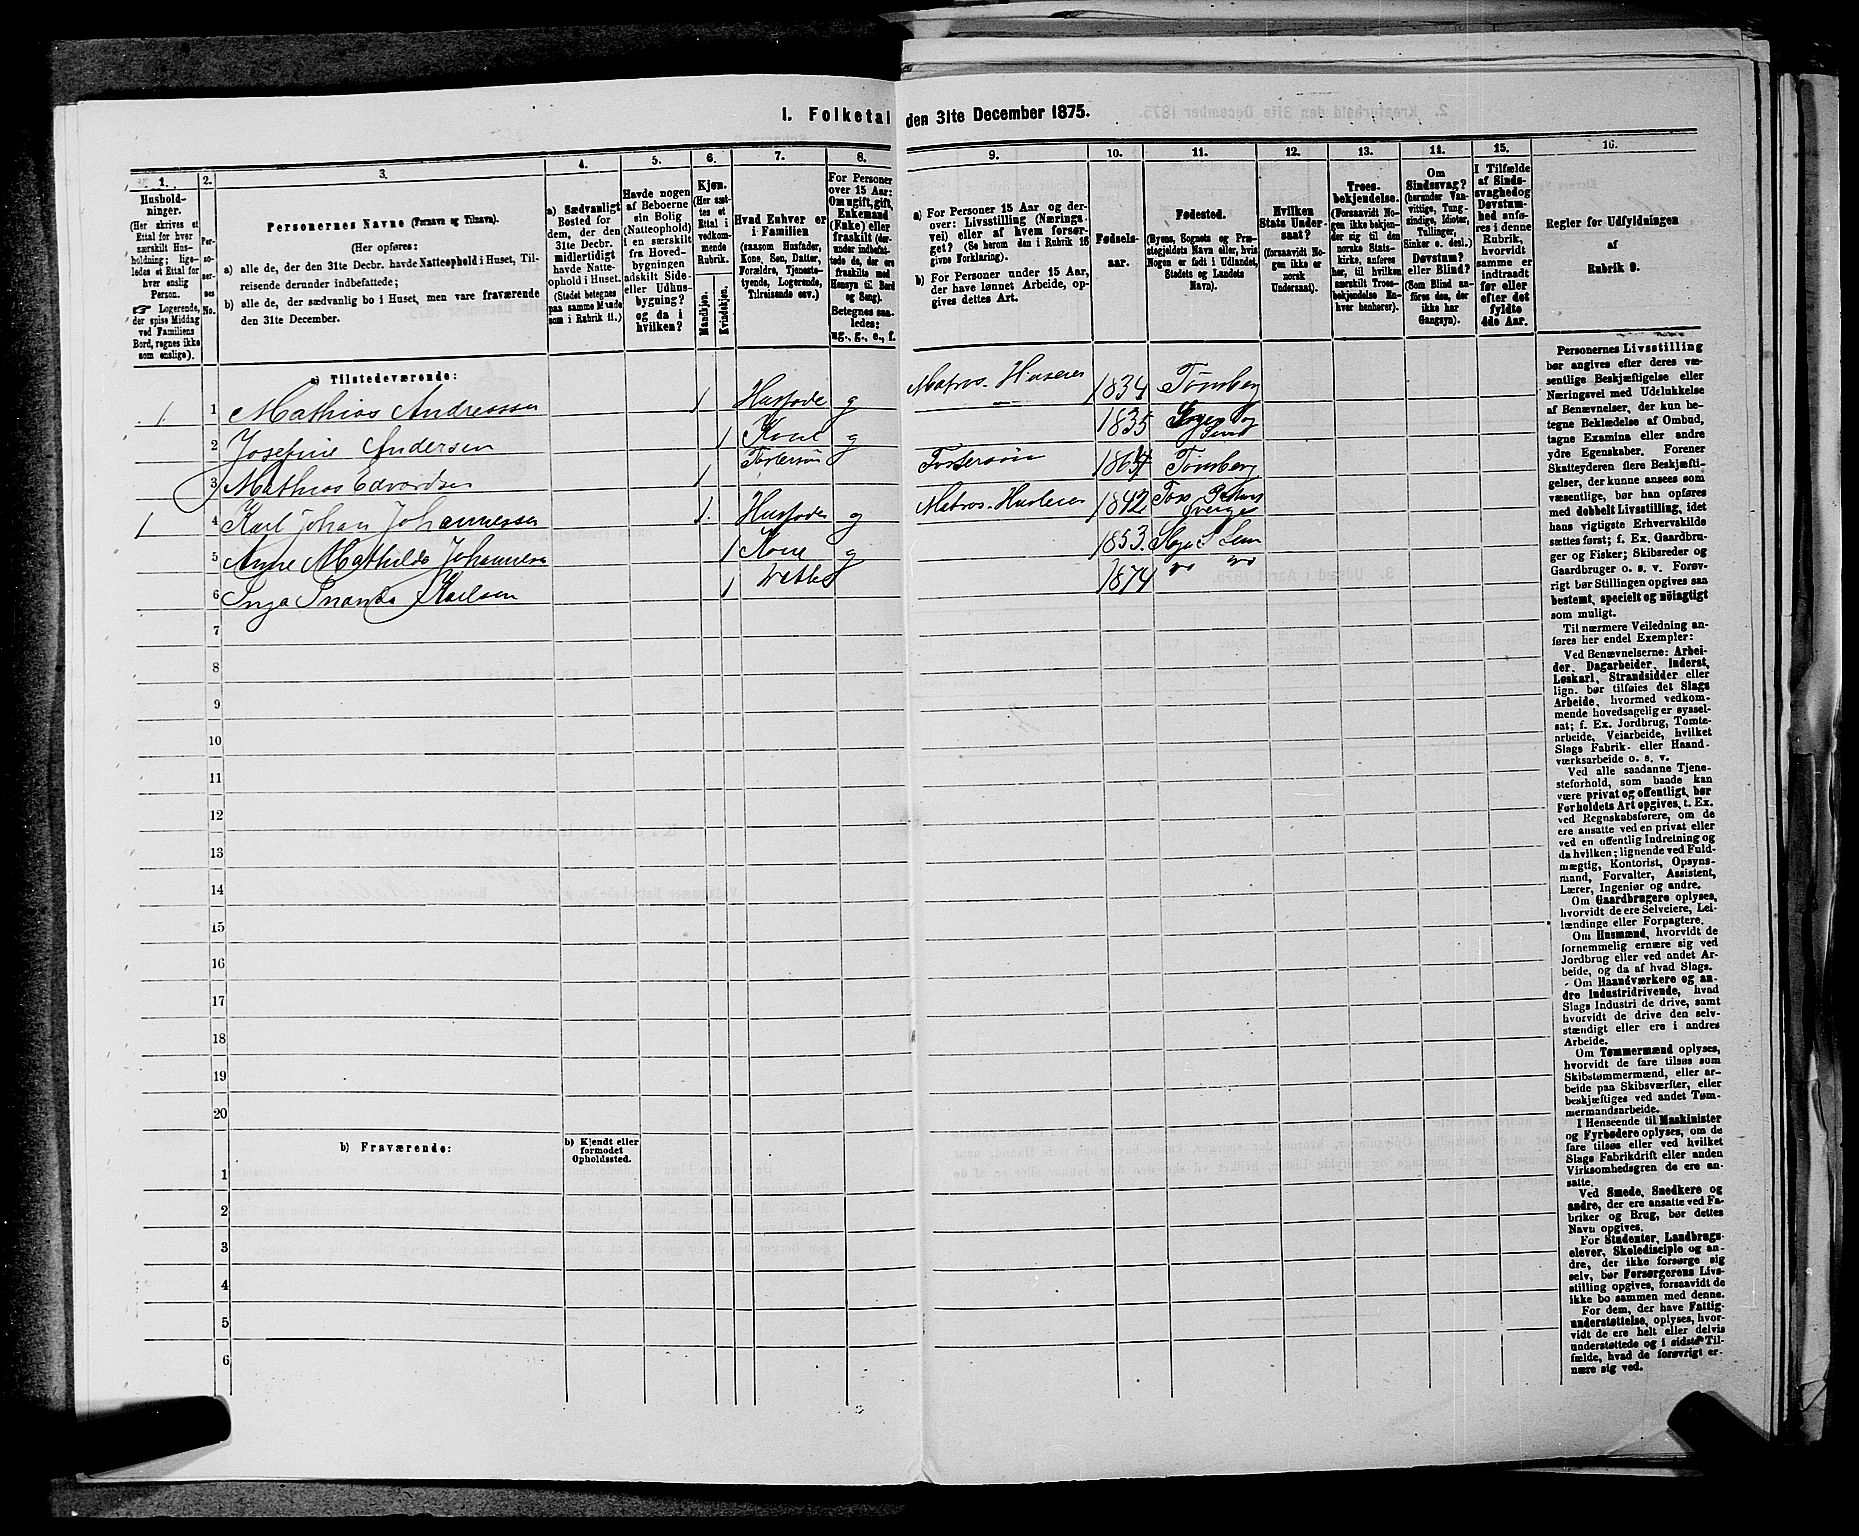 1. Folketal den 31te December 1875.
1.
Husholdninger.
(Her skrives et
Ettal for hver
særskilt Husholdning;
ligeledes et Ettal for
hver enslig
Person.
☞ Logerende,
der spise Middag
ved Familiens
Bord, regnes ikke
som enslige).
2.
Personernes
No.
3.
Personernes Navne (Fornavn og Tilnavn).
(Her opføres:
a) alle de, der den 31te Decbr. havde Natteophold i Huset, Tilreisende derunder indbefattede;
b) alle de, der sædvanlig bo i Huset, men vare fraværende
den 31te December.
4.
a) Sædvanligt
Bosted for
dem, der den
31te Decbr.
midlertidigt
havde Natteophold i Huset.
(Stedet betegnes
paa samme Maade
som i Rubrik 11.)
5.
Havde nogen
af Beboerne
sin Bolig
(Natteophold)
i en særskilt
fra Hovedbygningen
adskilt Sideeller Udhusbygning?
og da i
hvilken?
6.
Kjøn.
(Her sættes et
Ettal i
vedkommende
Rubrik.
Mandkjøn.
Kvindekjøn.
7.
Hvad Enhver er
i Familien
(saasom Husfader,
Kone, Søn, Datter,
Forældre, Tjenestetyende, Logerende,
Tilreisende osv.)
8.
For Personer
over 15 Aar:
Om ugift, gift,
Enkemand
(Enke) eller
fraskilt
Betegnes saaledes:
ug., g., e., f.
9.
a) For Personer 15 Aar og derover: Livsstilling (Næringsvei) eller af hvem forsørget? (Se herom den i Rubrik 16
givne Forklaring).
b) For Personer under 15 Aar,
der have lønnet Arbeide, opgives dettes Art.
10.
Fødselsaar.
11.
Fødested.
(Byens, Sognets og Præstegjeldets Navn eller, hvis
Nogen er født i Udlandet,
Stedets og Landets
Navn).
12.
Hvilken
Stats Undersaat?
(forsaavidt Nogen ikke er
norsk
Undersaat).
13.
Troesbekjendelse.
(Forsaavidt Nogen ikke bekjender sig til den
norske Statskirke, anføres
her, til hvilken
særskilt Troesbekjendelse Enhver henhører).
14.
Om
Sindssvag?
(herunder Vanvittige, Tungsindige, Idioter,
Tullinger,
Sinker o. desl.)
Døvstum?
eller Blind?
(Som Blind anføres den, der
ikke har
Gangsyn).
15.
I Tilfælde
af Sindssvaghed og
Døvstumhed anføres i denne
Rubrik,
hvorvidt
samme er
indtraadt
før eller
efter det
fyldte
4de Aar.
16.
Regler for Udfyldningen
af
Rubrik 9.
a) Tilstedeværende:
1 1 Mathias Andreassen 1 Husfader g Matros. Huseier 1834 Tønsberg
2 Josefine Andersen 1 Kone g 1835
3 Mathias Edvardsen 1 Fostersøn Fostersøn 1864 Tønsberg
1 4 Karl Johan Johannessen 1. Husfader g Matros. Huseier 1842
5 Anne Mathilde Johannesen 1 Kone g 1853. Sem
6 Inga Karlsen 1 1874
7
8
9
10
11
12
13
14
15
16
17
18
19
20
b) Fraværende:
b) Kjendt eller
formodet
Opholdssted.
1
2
3
4
5
6
Personernes Livsstilling
bør angives efter deres væsentlige Beskjæftigelse eller
Næringsvei med Udelukkelse
af Benævnelser, der kun betegne Beklædelse af Ombud,
tagne Examina eller andre
ydre Egenskaber. Forener
Skatteyderen flere Beskjæftigelser, der kunne ansees som
væsentlige, bør han opføres
med dobbelt Livsstilling, idet
hans vigtigste Erhvervskilde
sættes først; f. Ex. Gaardbruger og Fisker; Skibsreder og
Gaardbruger o. s. v. Forøvrigt bør Stillingen opgives saa
bestemt, specielt og nøiagtigt
som muligt.
Til nærmere Veiledning anføres her endel Exempler:
Ved Benævnelserne: Arbeider, Dagarbeider, Inderst,
Løskarl, Strandsidder eller
lign. bør tilføies det Slags
Arbeide, hvormed vedkommende hovedsagelig er sysselsat; f. Ex. Jordbrug, Tomtearbeide, Veiarbeide, hvilket
Slags Fabrik- eller Haandværksarbeide o. s. v.
Ved alle saadanne Tjenesteforhold, som baade kan
være privat og offentligt, bør
Forholdets Art opgives, t. Ex.
ved Regnskabsførere, om de
ere ansatte ved en privat eller
ved en offentlig Indretning og
da hvilken; lignende ved Fuldmægtig, Kontorist, Opsynsmand, Forvalter, Assistent,
Lærer, Ingeniør og andre.
Om Gaardbrugere oplyses,
hvorvidt de ere Selveiere, Leilændinge eller Forpagtere.
Om Husmænd, hvorvidt de
fornemmelig ernære sig ved
Jordbrug eller ved andet Arbeide, og da af hvad Slags.
Om Haandværkere og andre Industridrivende, hvad
Slags Industri de drive, samt
hvorvidt de drive den selvstændigt eller ere i andres
Arbeide.
Om Tømmermænd oplyses,
hvorvidt de fare tilsøs som
Skibstømmermænd, eller arbeide paa Skibsværfter, eller
beskjæftiges ved andet Tømmermandsarbeide.
I Henseende til Maskinister
og Fyrbødere oplyses, om de
fare tilsøs eller ved hvilket
Slags Fabrikdrift eller anden
Virksomhedsgren de ere ansatte.
Ved Smede, Snedkere og
andre, der ere ansatte ved Fabriker og Brug, bør dettes
Navn opgives.
For Studenter, Landbrugselever, Skoledisciple og andre, der ikke forsørge sig
selv, bør Forsørgerens Livsstilling opgives, forsaavidt de
ikke bo sammen med denne.
For dem, der have Fattigunderstøttelse, oplyses, hvorvidt de ere helt eller delvis
understøttede og i sidste Tilfælde, hvad de forøvrigt ernære sig ved.